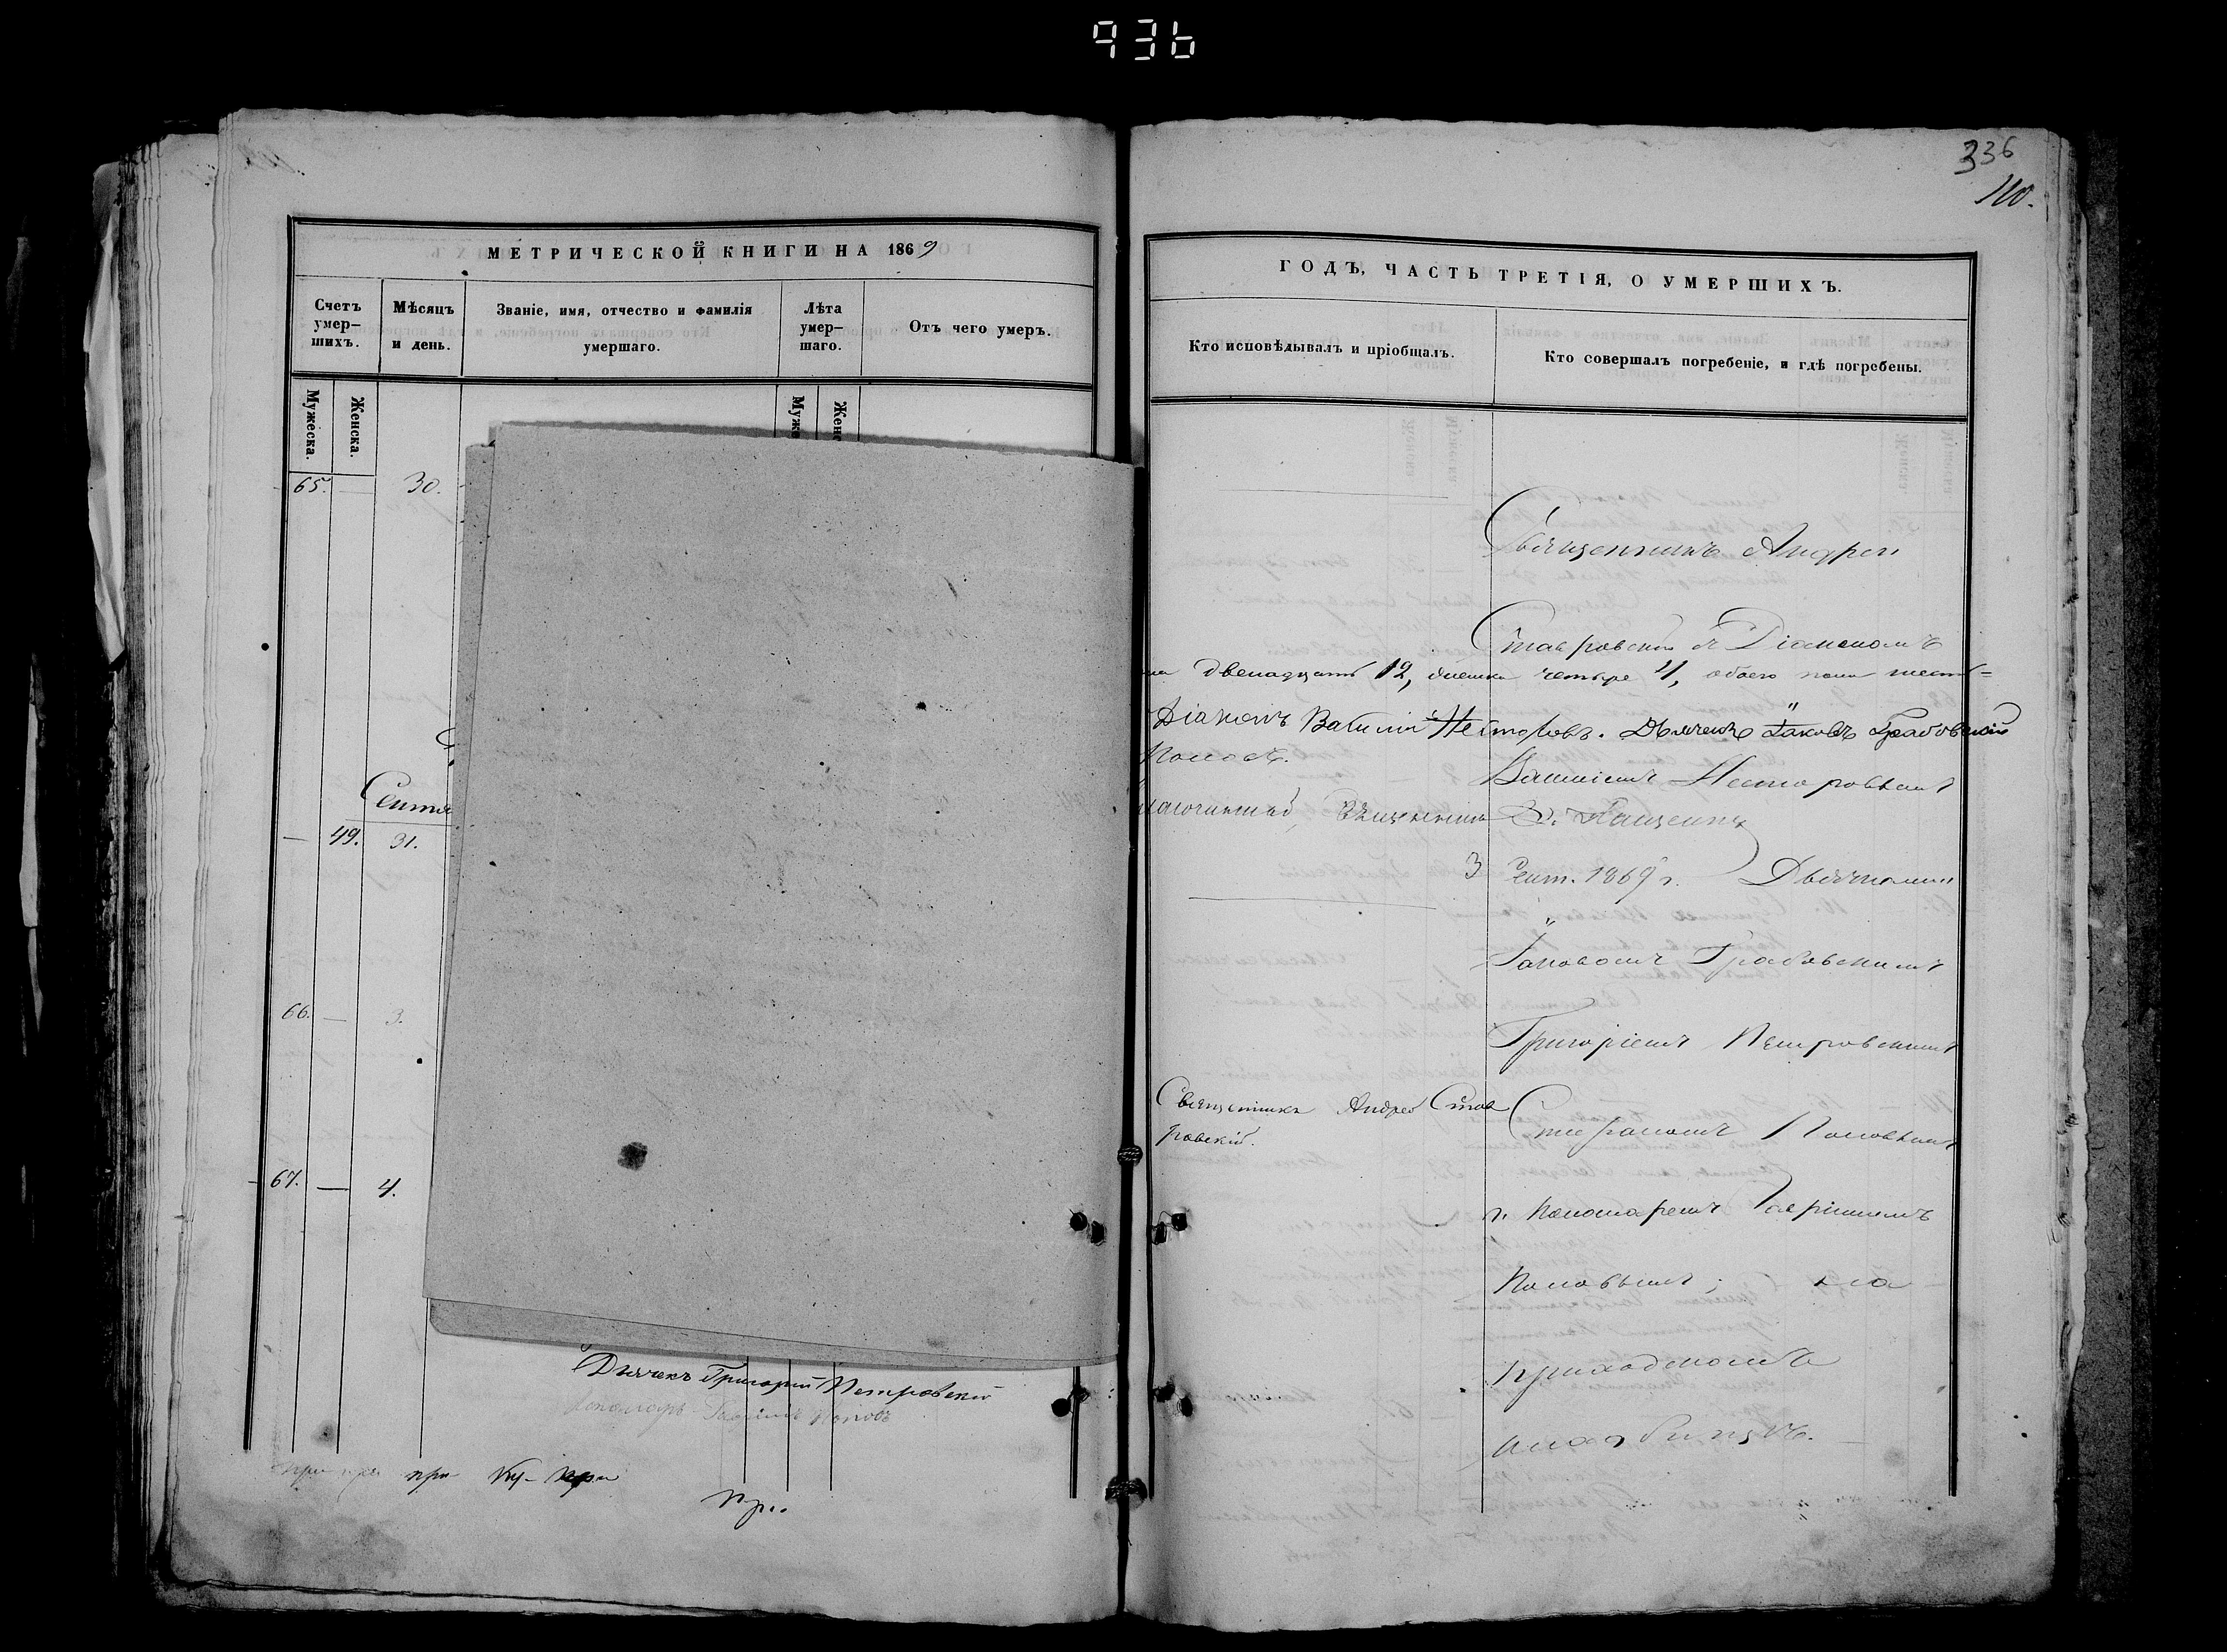 936
336
110.
МЕТРИЧЕСКОЙ КНИГИ НА 1869
Счетъ умер-
шихъ.
Мѣсяцъ
и день.
Званіе, имя, отчество и фамилія
умершаго.
Лѣта
умер-
шаго.
Отъ чего умеръ.
Мужеска.
Женска.
Муже
Женс
65. — 30.
Сентя
— 49. 31.
66. — 3.
67. — 4.
Дьячекъ Григорій Петровскій
Пономарь Гавріилъ Поповъ
при при при при
пр..
ГОДЪ, ЧАСТЬ ТРЕТІЯ, О УМЕРШИХЪ.
Кто исповѣдывалъ и пріобщалъ.
Кто совершалъ погребеніе, и гдѣ погребены.
Священникъ Андрей
Ставровскій съ Діакономъ
на двенадцать 12, женска четыре 4, обоего пола шест=
Діаконъ Василій Несторовъ. Дьячекъ Іаковъ Грабовскій
Поповъ.
Василіемъ Несторовымъ
Священникъ
3 Сент. 1869 г. Дьячками
Іаковомъ Грабовскимъ
Григоріемъ Петровскимъ
Священникъ Андрей Став
ровскій.
Стефаномъ Поповымъ
и Пономаремъ Гавріиломъ
Поповымъ; на
приходскомъ
кладбищѣ.